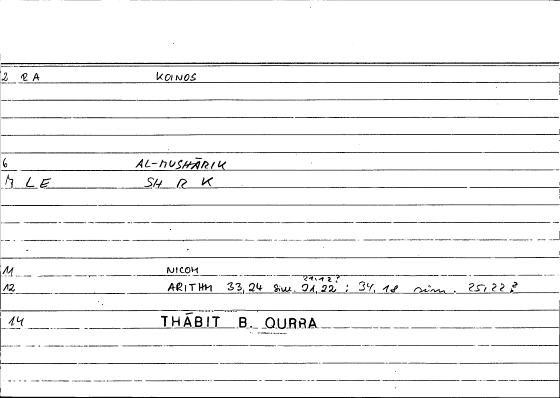 2 RA KOINOS
6 AL-MUSHĀRIK
7 LE SH R K
11 NICOM
21,12?
12 ARITHM 33,24 sim. 21,22 ; 34,18 sim. 25,22?
14 THĀBIT B. QURRA